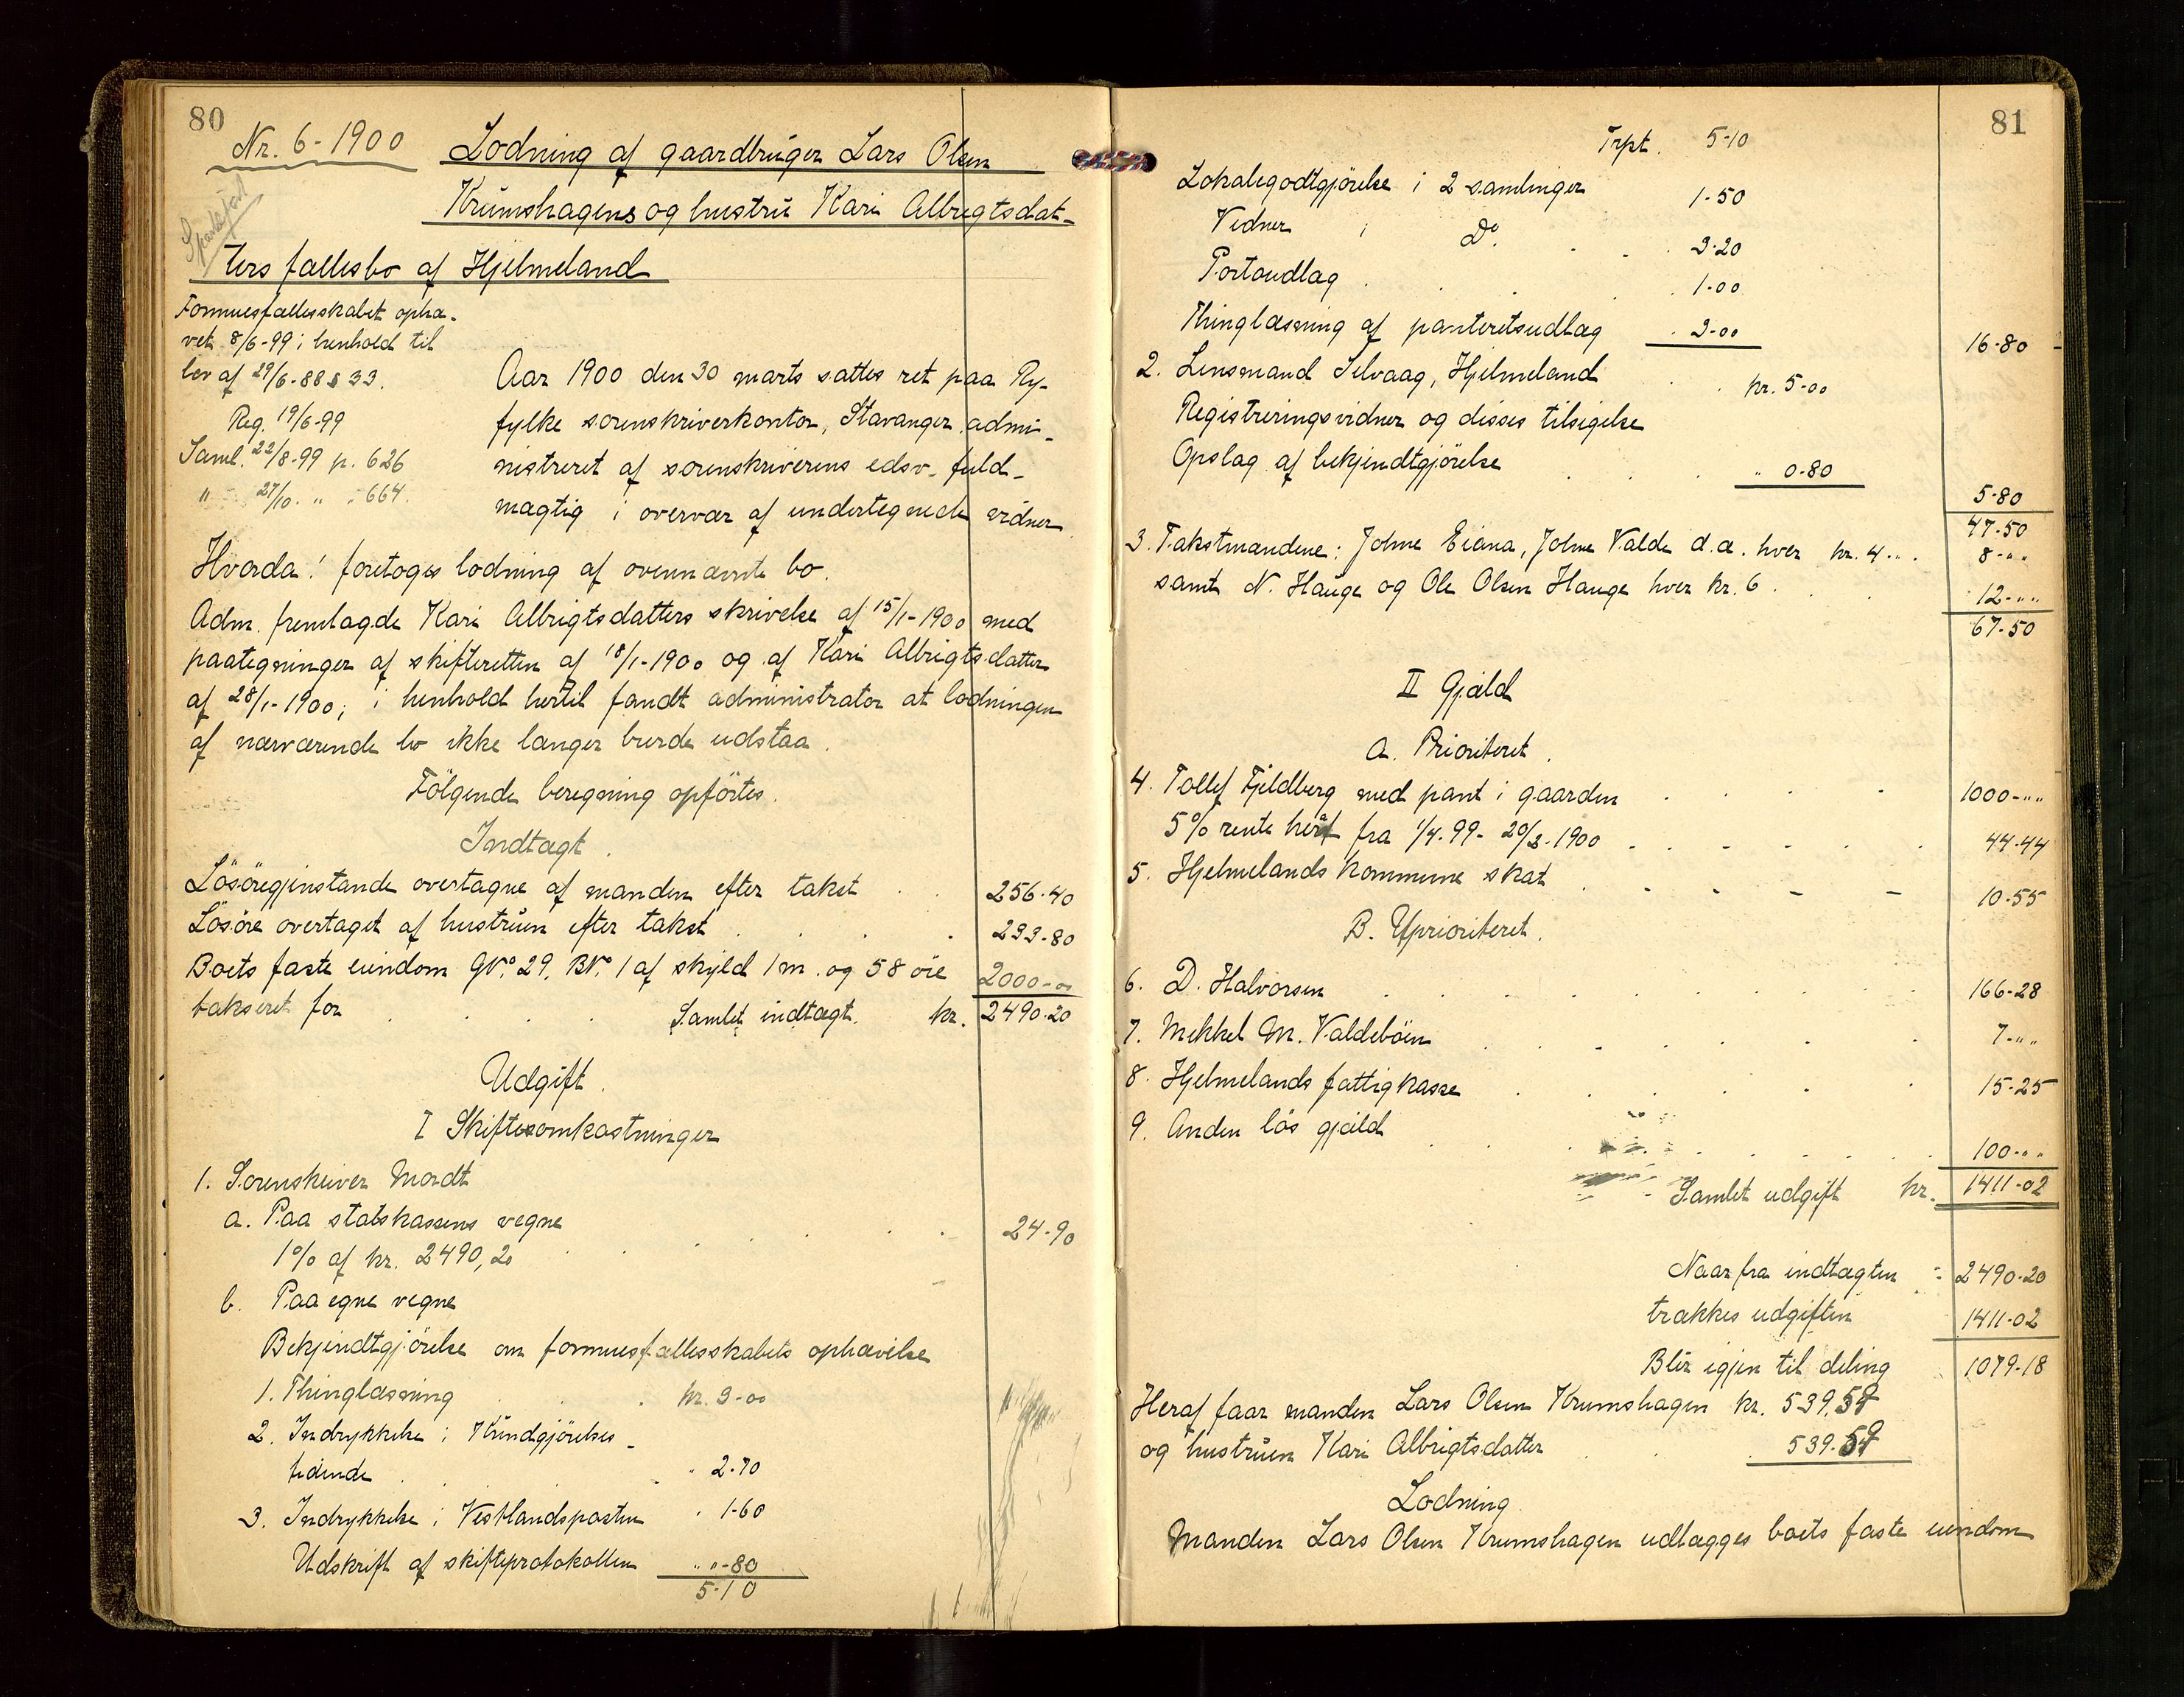 80
Nr. 6-1900 Lodning af gaardbruger Lars Olsen
Krumshagens og hustru Kari Albrigtsdat-
ters fællesbo af Hjelmeland
Formuesfællesskabet ophæ-
vet 8/6-99 i henhold til
lov af 29/6-88 § 33.
Reg. 19/6-99
Saml. 22/8-99 p. 626
" 27/10 " - 664.
Aar 1900 den 30 marts sattes ret paa Ry-
fylke sorenskriverkontor, Stavanger, admi-
nistreret af sorenskriverens edsv. fuld-
mægtig i overvær af undertegnede vidner
Hvorda! foretoges lodning af ovennævnte bo.
Adm. fremlagde Kari Albrigtsdatters skrivelse af 15/1-1900 med
paategninger af skifteretten af 18/1-1900 og af Kari Albrigtsdatter
af 28/1-1900; i henhold hertil fandt administrator at lodningen
af nærværende bo ikke længer burde udstaa.
Følgende beregning opførtes.
Indtægt.
Løsøregjenstande overtagne af manden efter takst . . 256-40
Løsøre overtaget af hustruen efter takst . . . 233-80
Boets faste eiendom GNo. 29, BNo. 1 af skyld 1 m. og 58 øre 2000-00
takseret for . . . . Samlet indtægt. kr. 2490-20
Udgift.
I Skiftesomkostninger
1. Sorenskriver Mordt
a. Paa statskassens vegne
1% af kr. 2490,20 . . . . . 24-90
b. Paa egne vegne
Bekjendtgjørelse om formuesfællesskabets ophævelse
1. Thinglæsning . . . kr. 3-00
2. Indrykkelse i Kundgjørelses-
tidende . . " 2-70
3. Indrykkelse i Vestlandsposten " 1-60
Udskrift af skifteprotokollen " "-80
5-10
81
Trpt. 5-10
Lokalegodtgjørelse i 2 samlinger 1-50
Vidner i Do. . . 3-20
Portoudlag . . . . 1-00
Thinglæsning af panteretsudlæg . 3-00 16-80
2. Lensmand Selvaag, Hjelmeland . . kr. 5-00
Registreringsvidner og disses tilsigelse
Opslag af bekjendtgjørelse . . . " 0-80
5-80
47-50
3. Takstmændene: Johne Eiane, Johne Valde d.æ. hver kr. 4-". 8-""
samt N. Hauge og Ole Olsen Hauge hver kr. 6 . . . 12-""
67-50
II Gjæld
A. Prioriteret.
4. Tollef Fjeldberg med pant i gaarden . . . . 1000-""
5% rente heraf fra 1/4-99 - 20/2-1900 . . . . . 44-44
5. Hjelmelands kommune skat . . . . . 10-55
B. Uprioriteret.
6. D. Halvorsen . . . . . . . 166-28
7. Mikkel M. Valdebøen . . . . . . 7-""
8. Hjelmelands fattigkasse . . . . . 15-25
9. Anden løs gjæld . . . . . . 100-""
Samlet udgift kr. 1411-02
Naar fra indtægten 2490-20
trækkes udgiften 1411-02
Blir igjen til deling 1079-18
Heraf faar manden Lars Olsen Krumshagen kr. 539.59
og hustruen Kari Albrigtsdatter . . 539.59
Lodning
Manden Lars Olsen Krumshagen udlægges boets faste eiendom